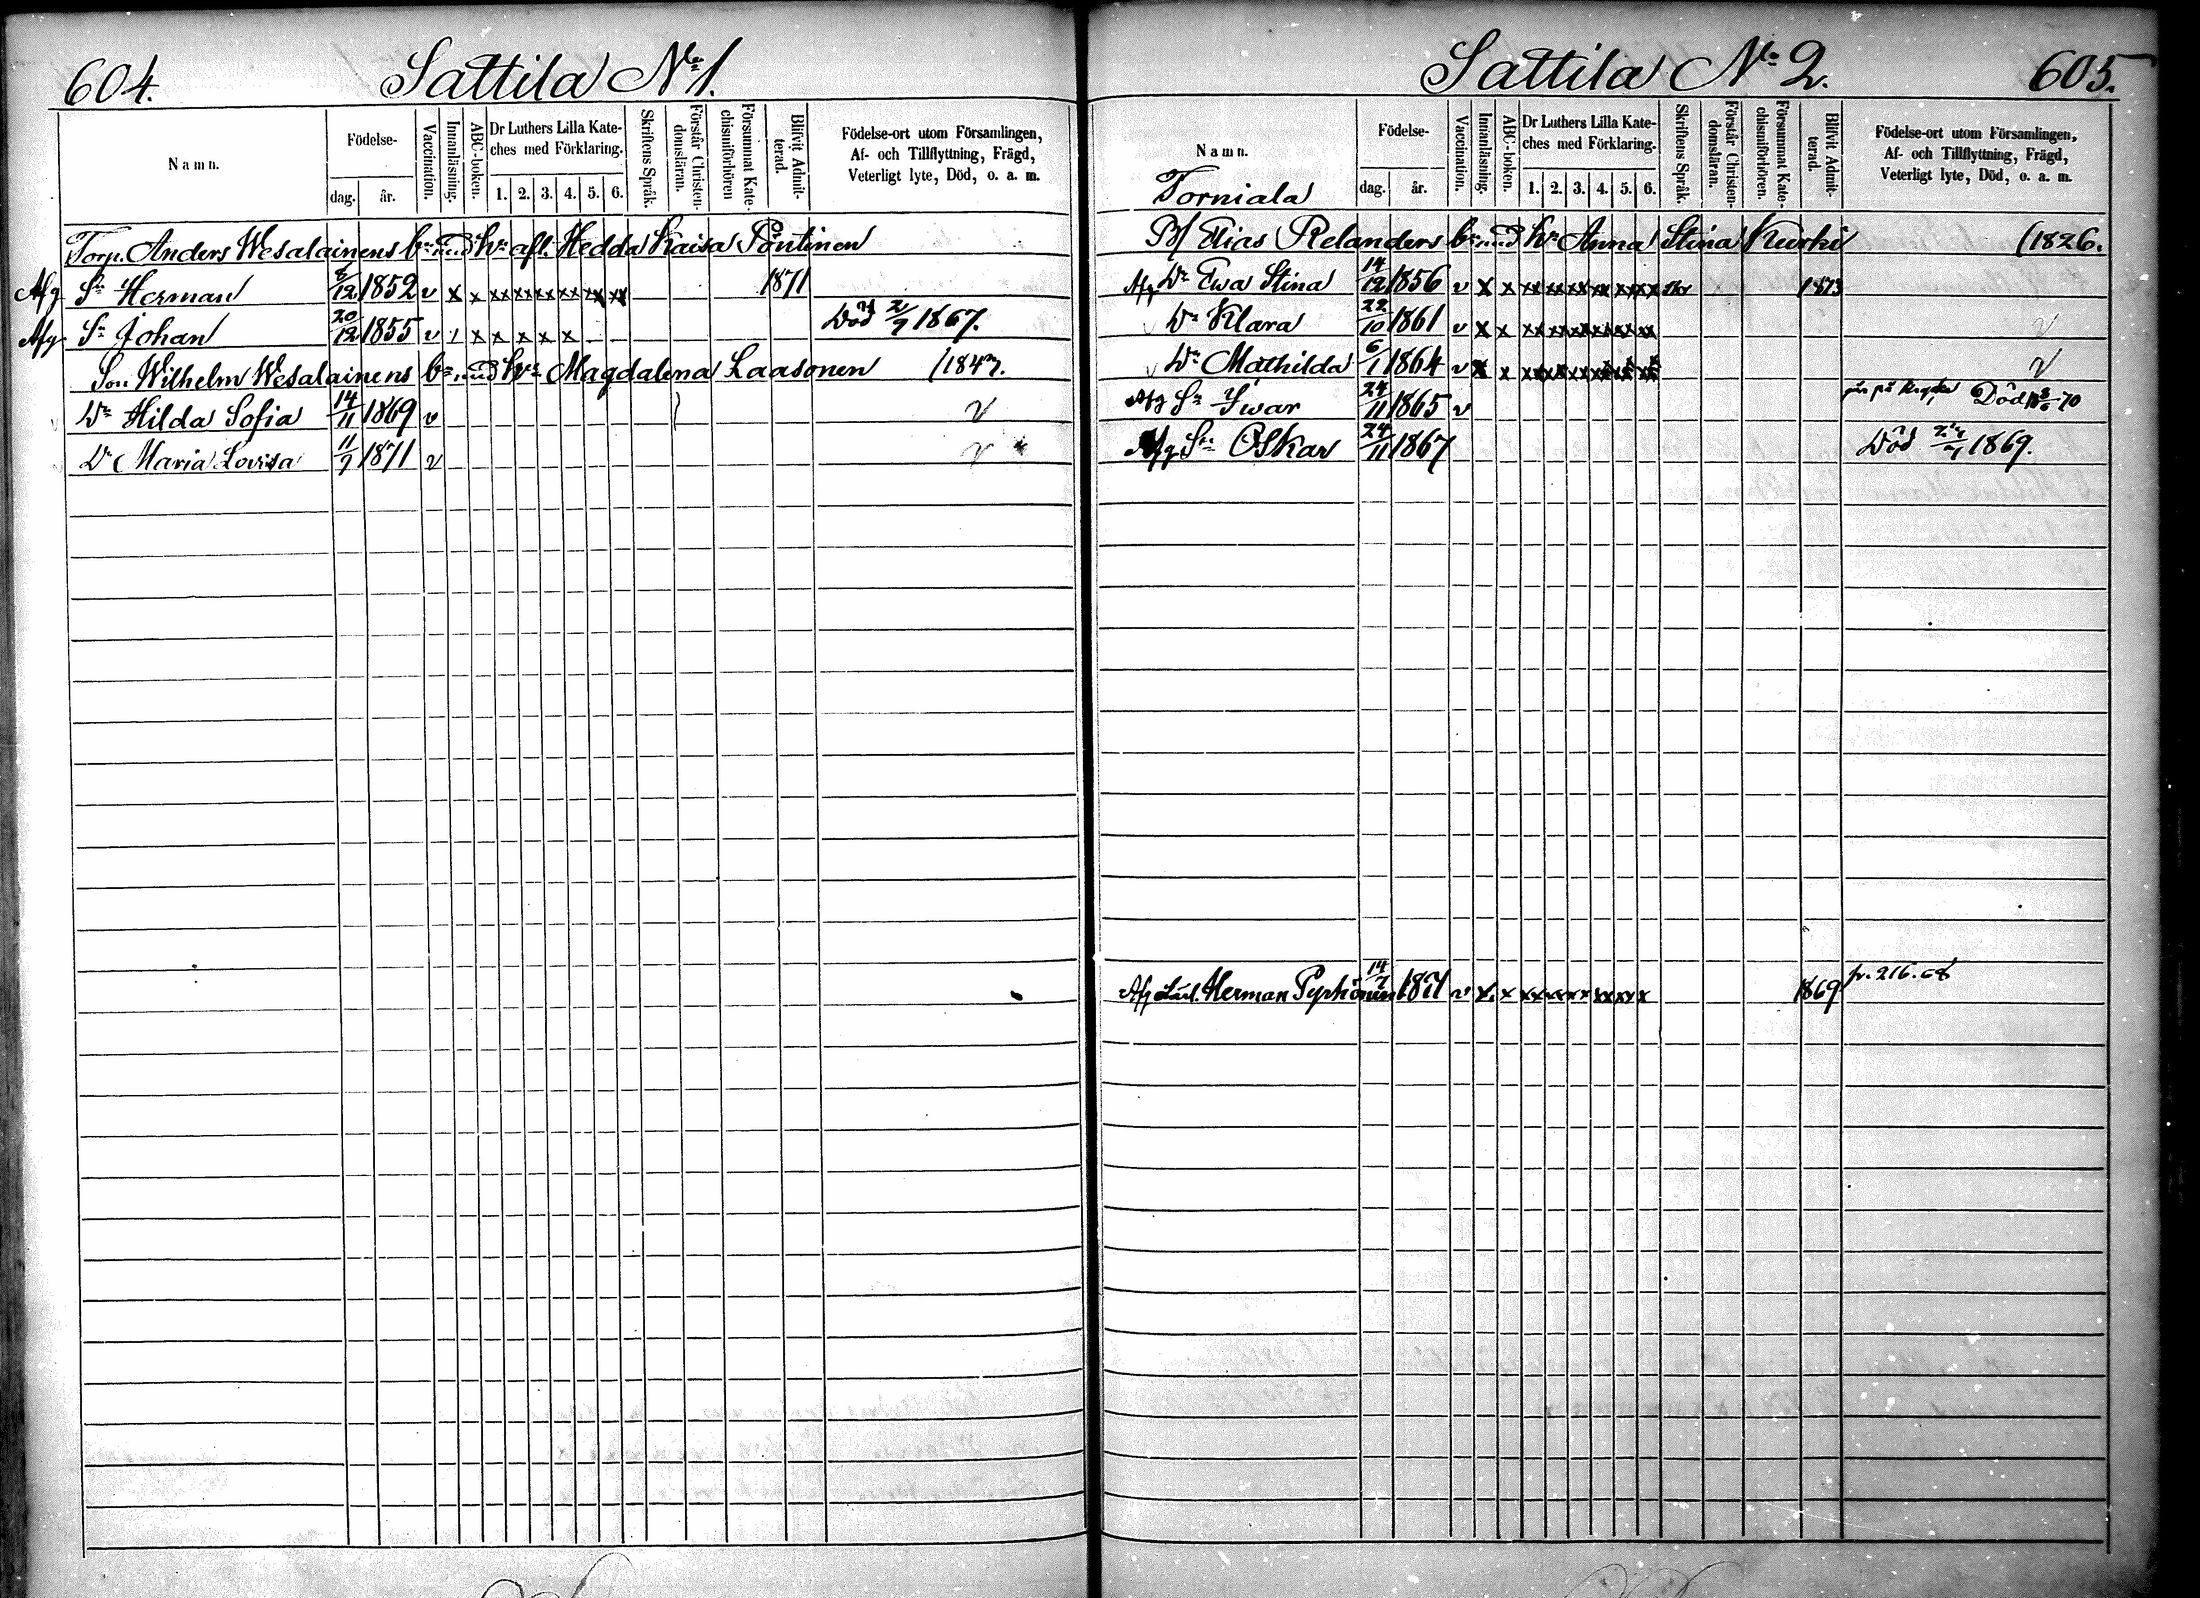 604. Sattila No 1.
Namn.
Födelse-
dag.
år.
Vaccination.
Innanläsning.
ABC-boken.
Dr Luthers Lilla Kate-
ches med Förklaring.
1. 2. 3. 4. 5. 6.
Skriftens Språk.
Förstår Christen-
domsläran.
Försummat Kate-
chismiförhören
Blifvit Admit-
terad.
Födelse-ort utom Församlingen,
Af- och Tillflyttning, Frägd,
Veterligt lyte, Död, o. a. m.
Torp. Anders Wesalainens bn med hu afl. Hedda Kaisa Pöntinen
Afg Sn Herman 12 1852 v x x xx xx xx xx xx xx 1871
Afg Sn Johan 20/12 1855 v / x x x x x Död 2/9 1867.
Son Wilhelm Wesalainens bn med hu Magdalena Laasonen (1843.
Dr Hilda Sofia 14/11 1869 v v
Dr Maria Lovisa 11/9 1871 v v
Sattila No 2. 605.
Namn.
Torniala
Födelse-
dag.
år.
Vaccination.
Innanläsning.
ABC-boken.
Dr Luthers Lilla Kate-
ches med Förklaring.
1. 2. 3. 4. 5. 6.
Skriftens Språk.
Förstår Christen-
domsläran.
Försummat Kate-
chismiförhören.
Blifvit Admit-
terad.
Födelse-ort utom Församlingen,
Af- och Tillflyttning, Frägd,
Veterligt lyte, Död, o. a. m.
Elias Relanders bn med hu Anna Stina Kurki (1826.
Afg Dr Ewa Stina 14/12 1856 v x x xx xx xx xx xx xx 1873
v Dr Klara 22/10 1861 v x x xx xx xx xx xx xx v
v Dr Mathilda 6/1 1864 v x x xx xx xx xx xx xx v
Afg Sn Iwar 24/11 1865 v Död 70
Afg Sn Oskar 24/11 1867 Död 1869.
Afg Herman Pyrhönen 14/7 v x x xx xx xx xx xx x 1869 fr. 216. 68